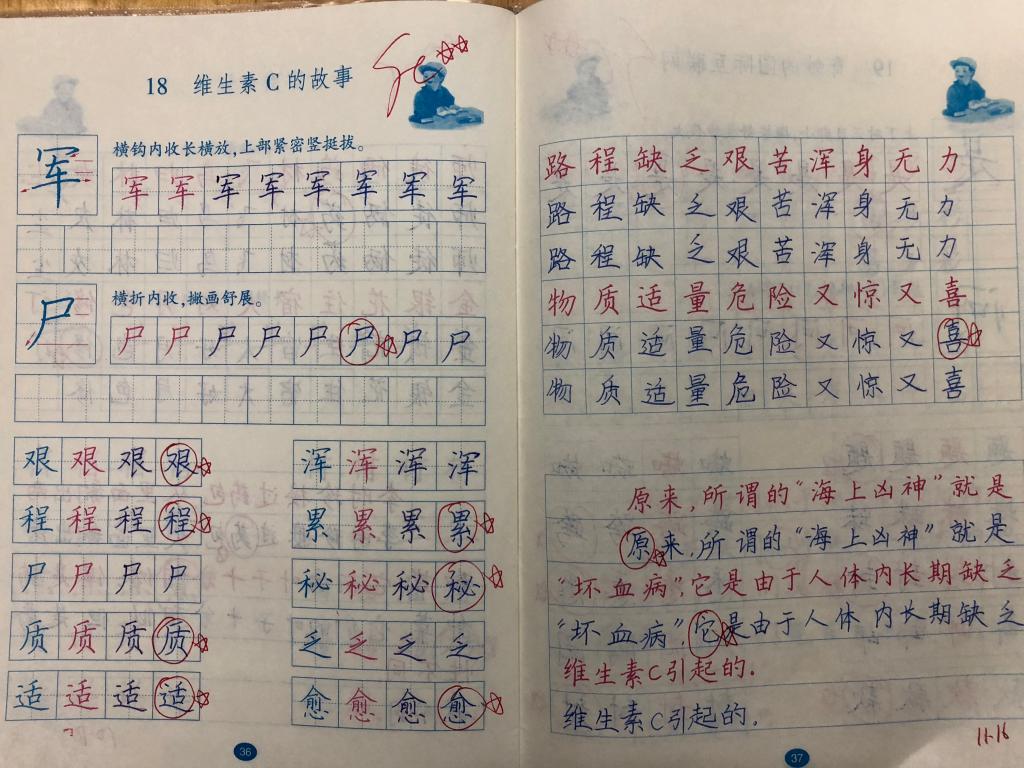 18 维生素C的故事
军
横钩内收长横放,上部紧密竖挺拔。
军军军军军军军军
尸
横折内收,撇画舒展。
尸尸尸尸尸尸尸尸
艰艰艰艰
浑浑浑浑
程程程程
累累累累
尸尸尸尸
秘秘秘秘
质质质质
乏乏乏乏
适适适适
愈愈愈愈
36
路程缺乏艰苦浑身无力
路程缺乏艰苦浑身无力
路程缺乏艰苦浑身无力
物质适量危险又惊又喜
物质适量危险又惊又喜
物质适量危险又惊又喜
原来,所谓的“海上凶神”就是
原来,所谓的“海上凶神”就是
“坏血病”,它是由于人体内长期缺乏
“坏血病”,它是由于人体内长期缺乏
维生素C引起的.
维生素C引起的.
11-16
37